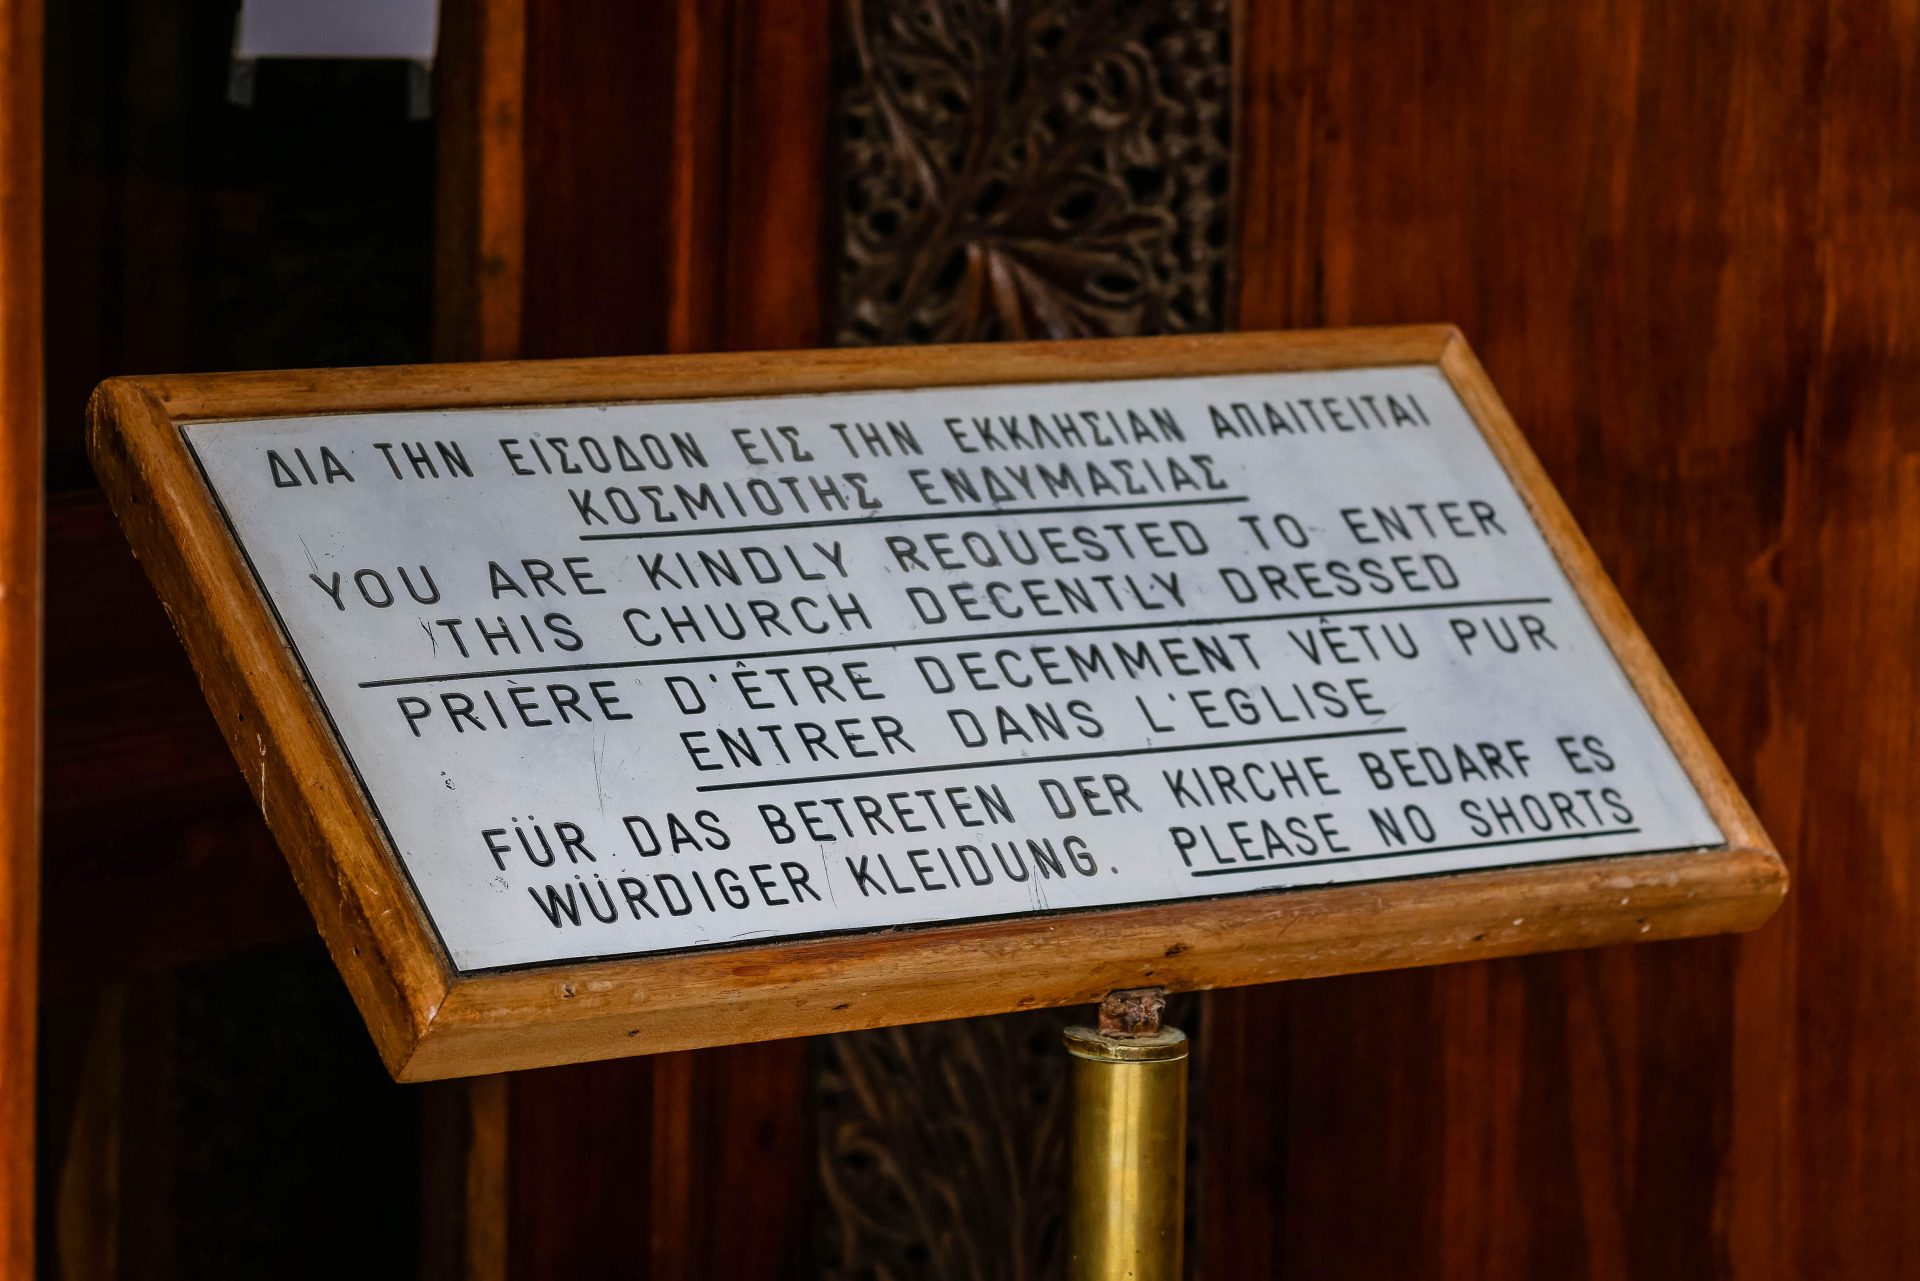 ΔΙΑ ΤΗΝ ΕΙΣΟΔΟΝ ΕΙΣ ΤΗΝ ΕΚΚΛΗΣΙΑΝ ΑΠΑΙΤΕΙΤΑΙ
ΚΟΣΜΙΟΤΗΣ ΕΝΔΥΜΑΣΙΑΣ
YOU ARE KINDLY REQUESTED TO ENTER
THIS CHURCH DECENTLY DRESSED
PRIÈRE D'ÊTRE DECEMMENT VÊTU PUR
ENTRER DANS L'EGLISE
FÜR DAS BETRETEN DER KIRCHE BEDARF ES
WÜRDIGER KLEIDUNG. PLEASE NO SHORTS